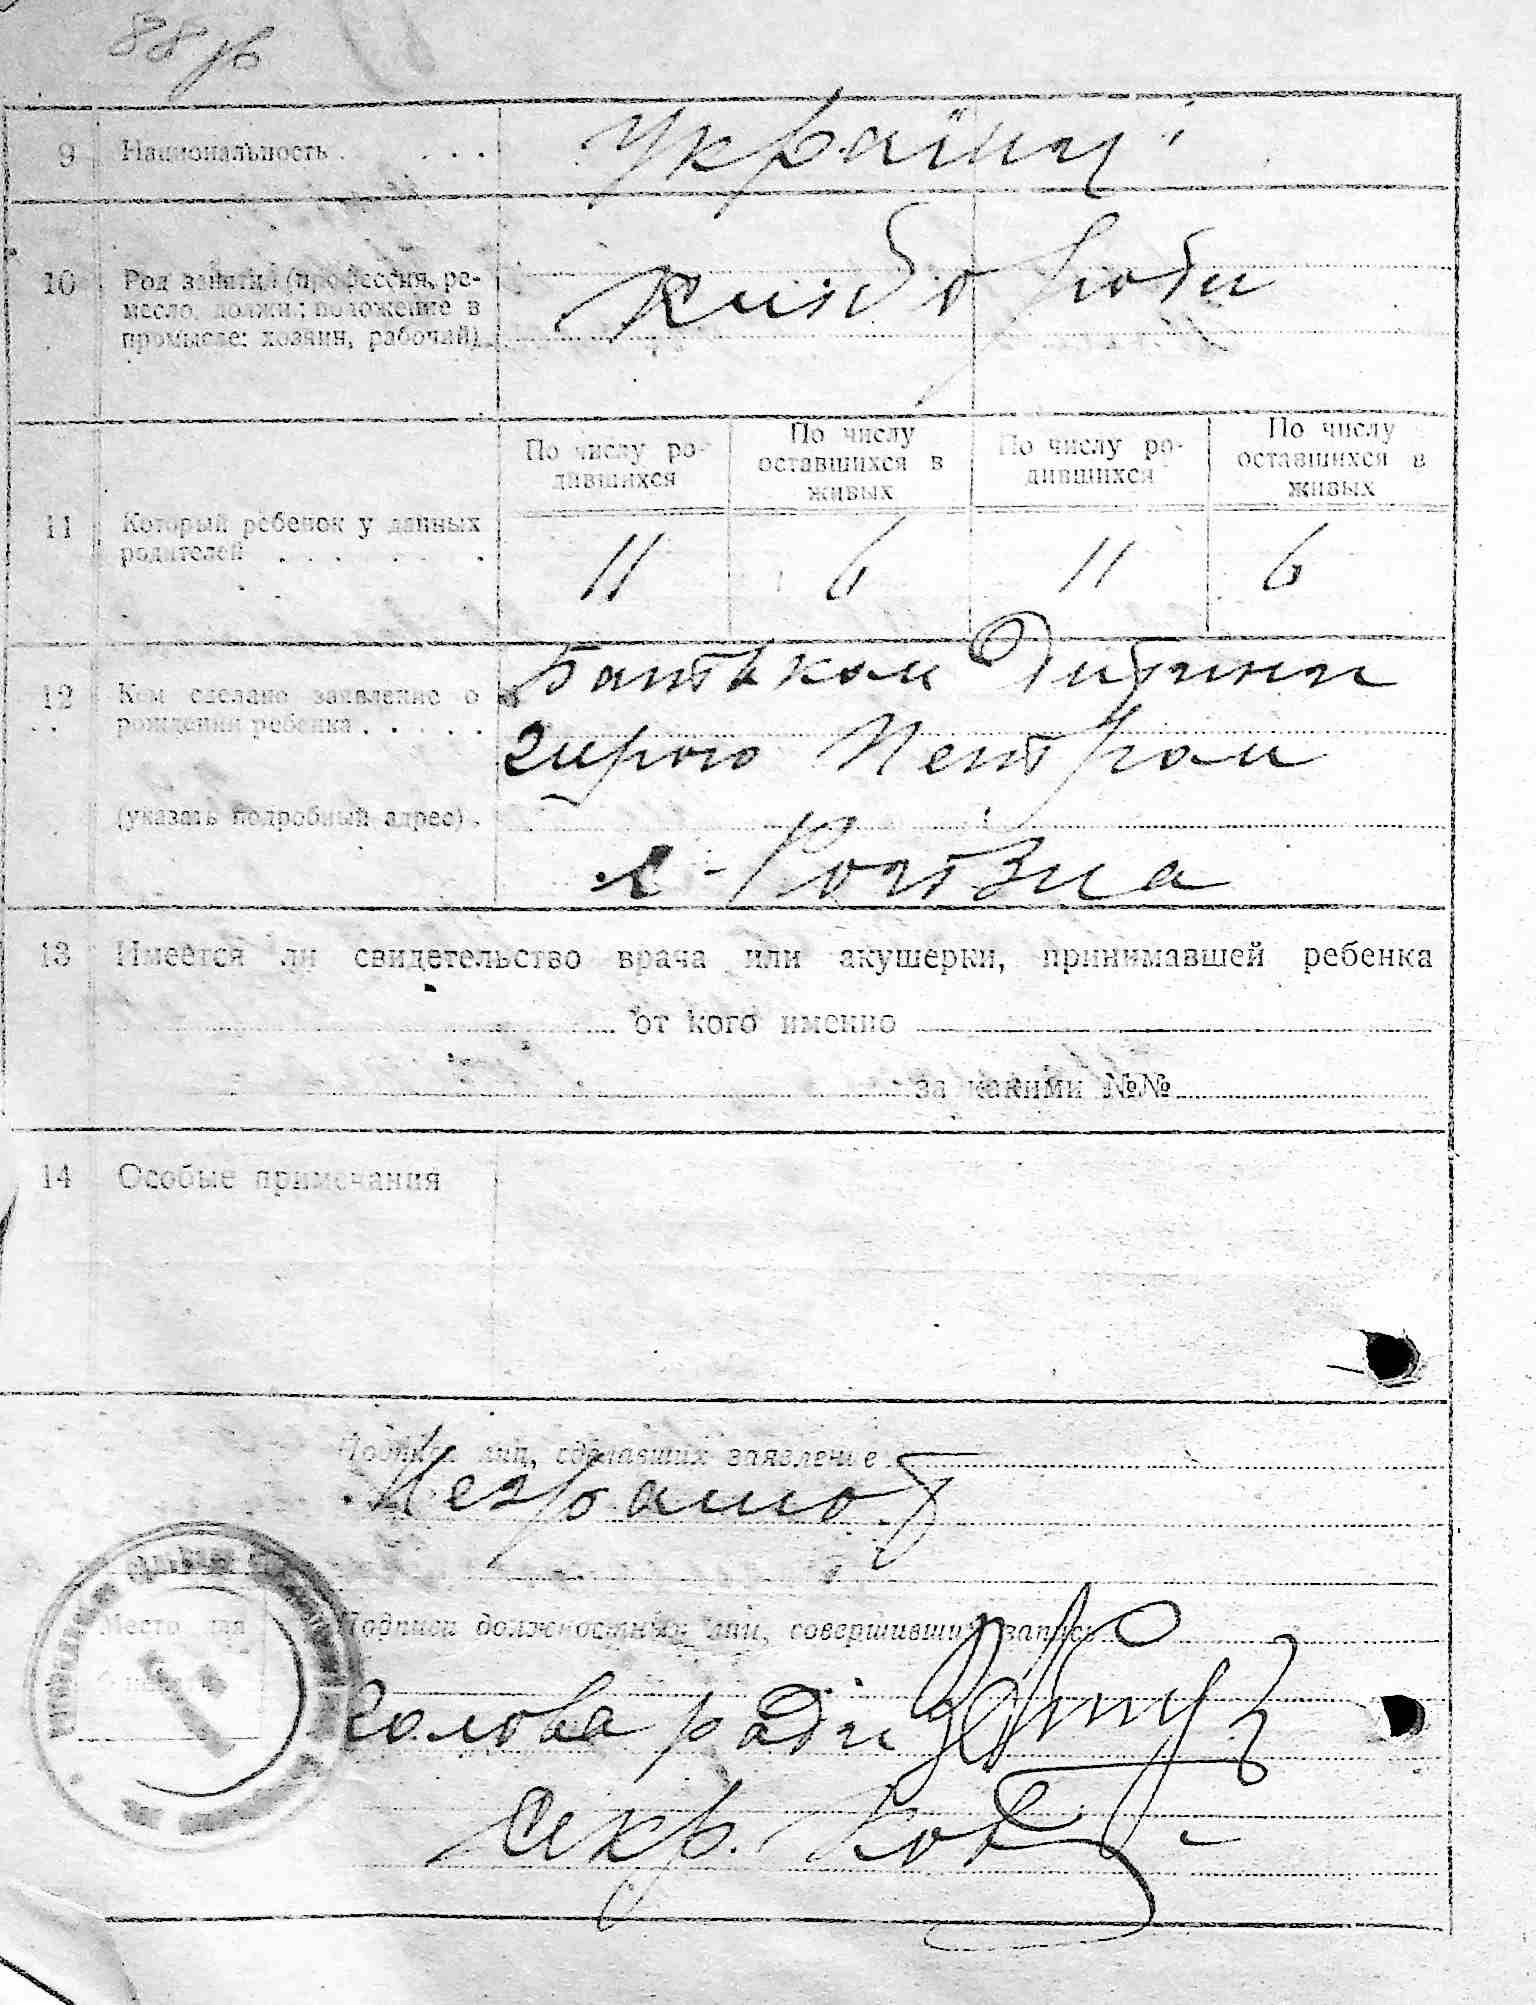 88 зв
9 Национальность . . . . . Українці
10 Род занятий (профессия, ре-
месло, должн.; положение в
промысле: хозяин, рабочий)
Хлібороби
По числу ро-
дившихся
По числу
оставшихся в
живых
По числу ро-
дившихся
По числу
оставшихся в
живых
11 Который ребенок у данных
родителей . . . . . .
11 6 11 6
12 Кем сделано заявление о
рождении ребенка . . . . .
(указать подробный адрес) .
Батьком Дитини
Петром
с.
13 Имеется ли свидетельство врача или акушерки, принимавшей ребенка
от кого именно
за какими №№
14 Особые примечания
Подписи лиц, сделавших заявление
Неграмот
Место для
Подписи должностных лиц, совершивших запись
Голова ради
Секр.